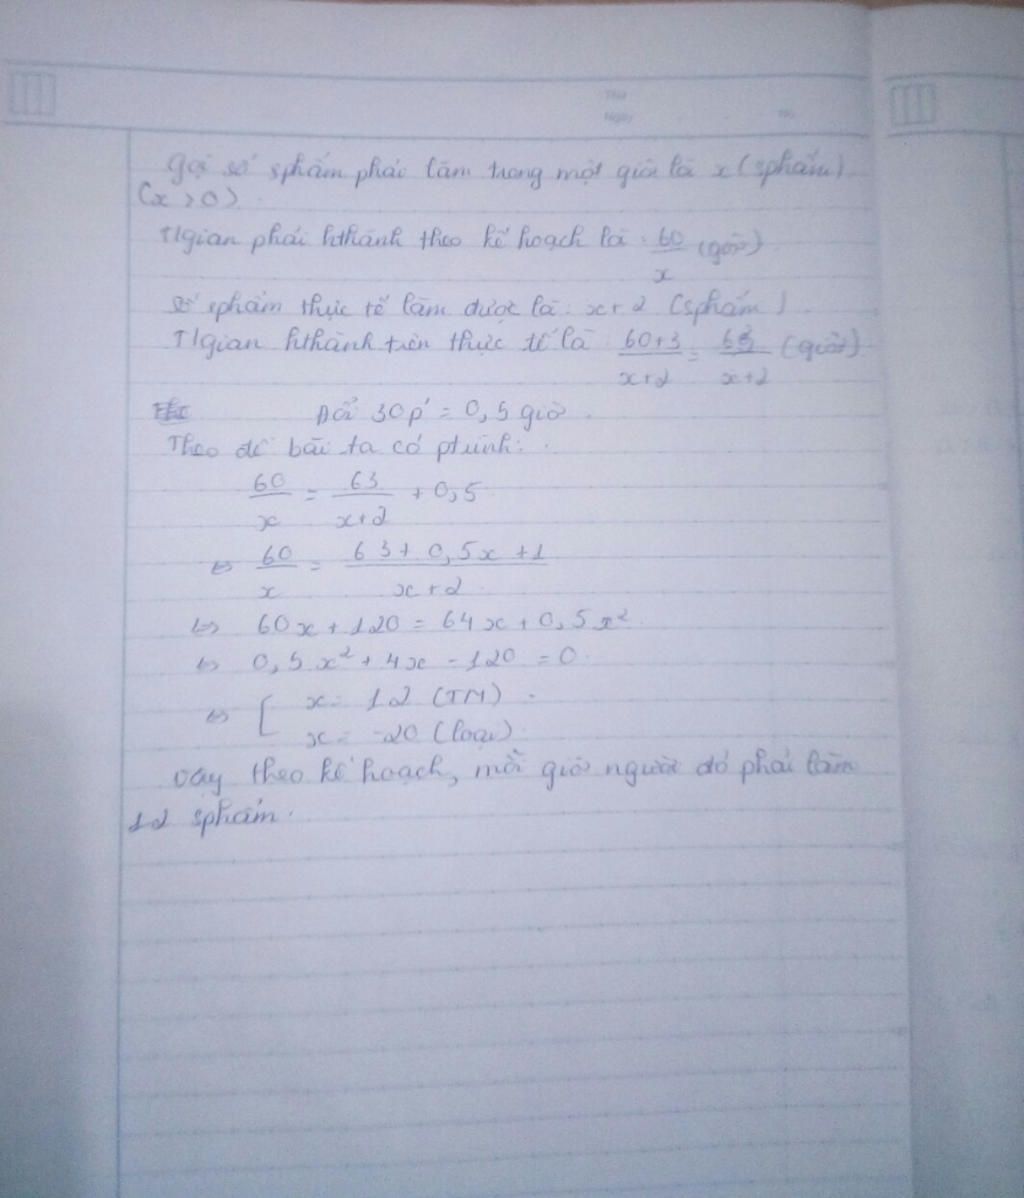 Thứ
Ngày
No
Gọi số sphẩm phải làm trong một giờ là x (sphẩm)
(x > 0)
T/gian phải hthành theo kế hoạch là : 60/x (giờ)
số sphẩm thực tế làm được là : x + 2 (sphẩm)
T/gian hthành trên thực tế là 60+3/x+2 = 63/x+2 (giờ)
Đổi 30p' = 0,5 giờ .
Theo đề bài ta có ptrình:
60/x = 63/x+2 + 0,5
⇔ 60/x = 63 + 0,5x + 1/x+2
⇔ 60x + 120 = 64x + 0,5x²
⇔ 0,5x² + 4x - 120 = 0
⇔ [ x = 12 (TM)
x = -20 (loại)
Vậy theo kế hoạch, mỗi giờ người đó phải làm
12 sphẩm.